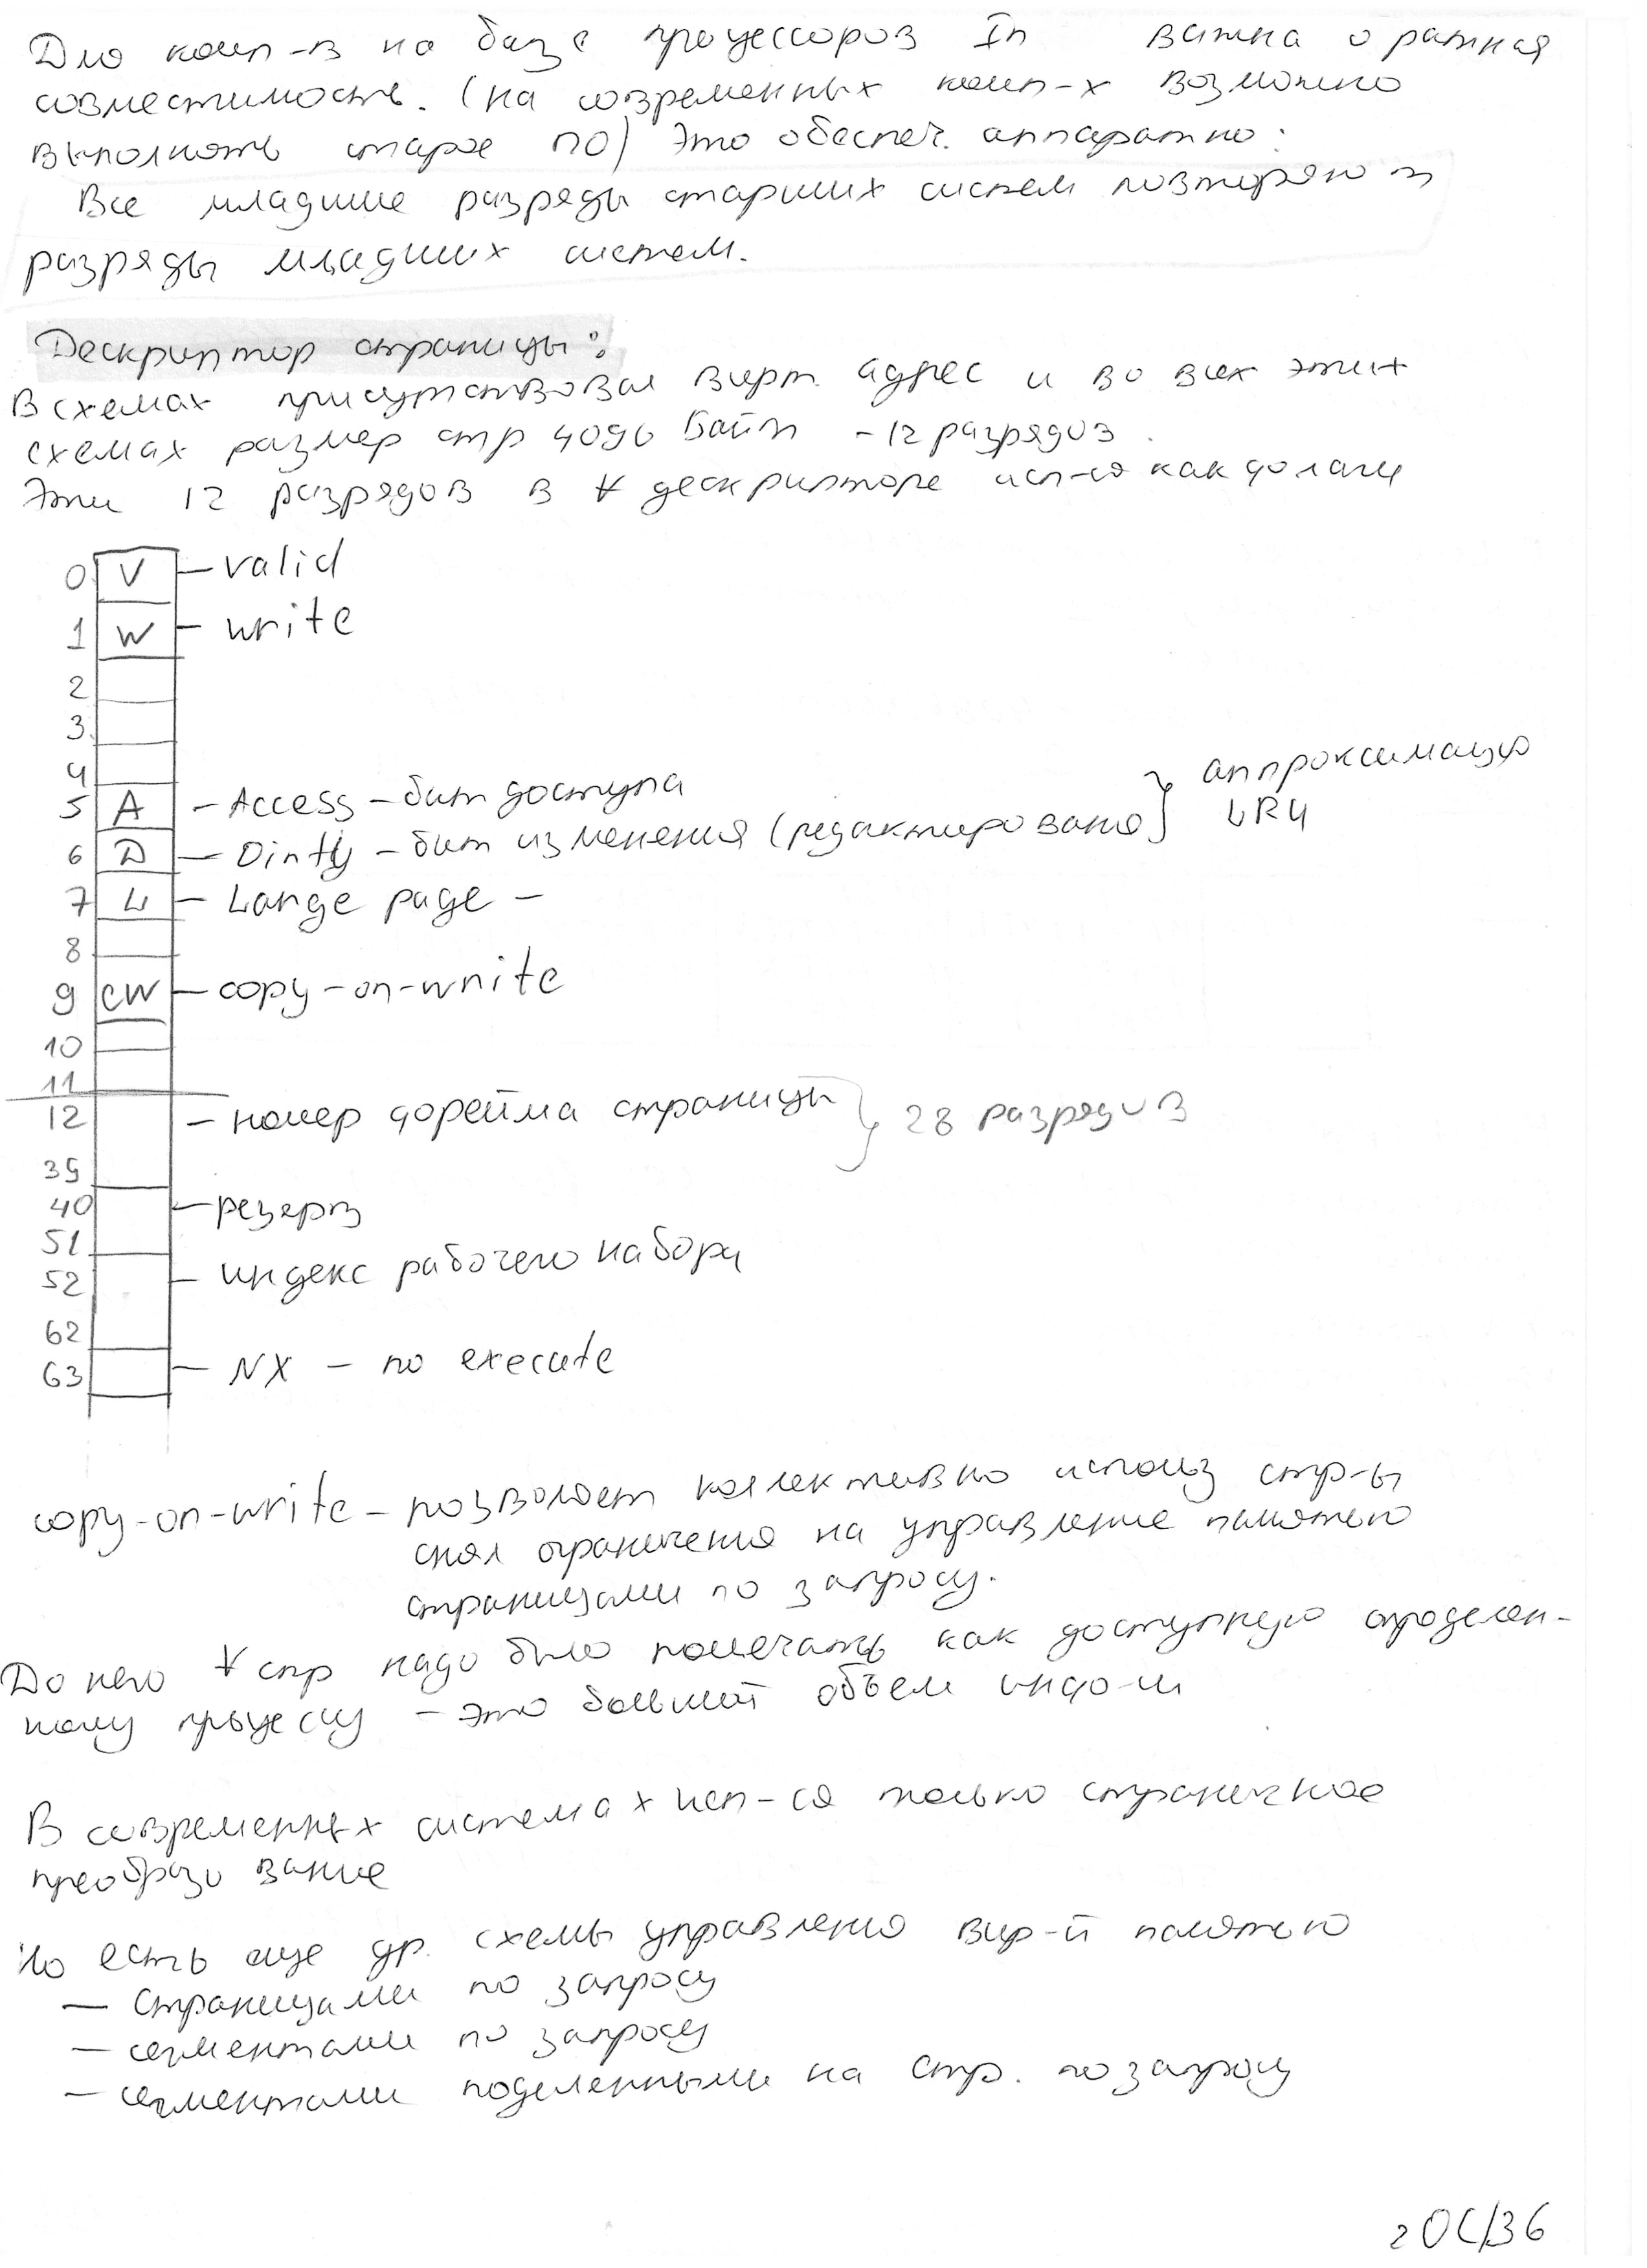 Для комп-в на базе процессоров In важна о ратная
совместимость. (на современных комп-х возможно
выполнять старое ПО) Это обеспеч. аппаратно:
Все младшие разряды старших систем повторяют
разряды младших систем.
Дескриптор страницы:
В схемах присутствовал вирт. адрес и во всех этих
схемах размер стр 4096 байт - 12 разрядов.
Эти 12 разрядов в ∀ дескрипторе исп-ся как флаги
0 V - valid
1 W - write
2
3
4
5 A - Access - бит доступа } аппроксимация
6 D - Dirty - бит изменения (редактирования) LRU
7 L - Large page -
8
9 CW - copy-on-write
10
11
12 - номер фрейма страницы } 28 разрядов
39
40 - резерв
51
52 - индекс рабочего набора
62
63 - NX - no execute
copy-on-write - позволяет коллективно использ стр-ы
снял ограничения на управление памятью
страницами по запросу.
До него ∀ стр надо было помечать как доступную определен-
ному процессу - это большой объем инфо-и
В современных системах исп-ся только страничное
преобразование
Но есть еще др. схемы управления вир-й памятью
- страницами по запросу
- сегментами по запросу
- сегментами поделенными на стр. по запросу
2 ОС/36